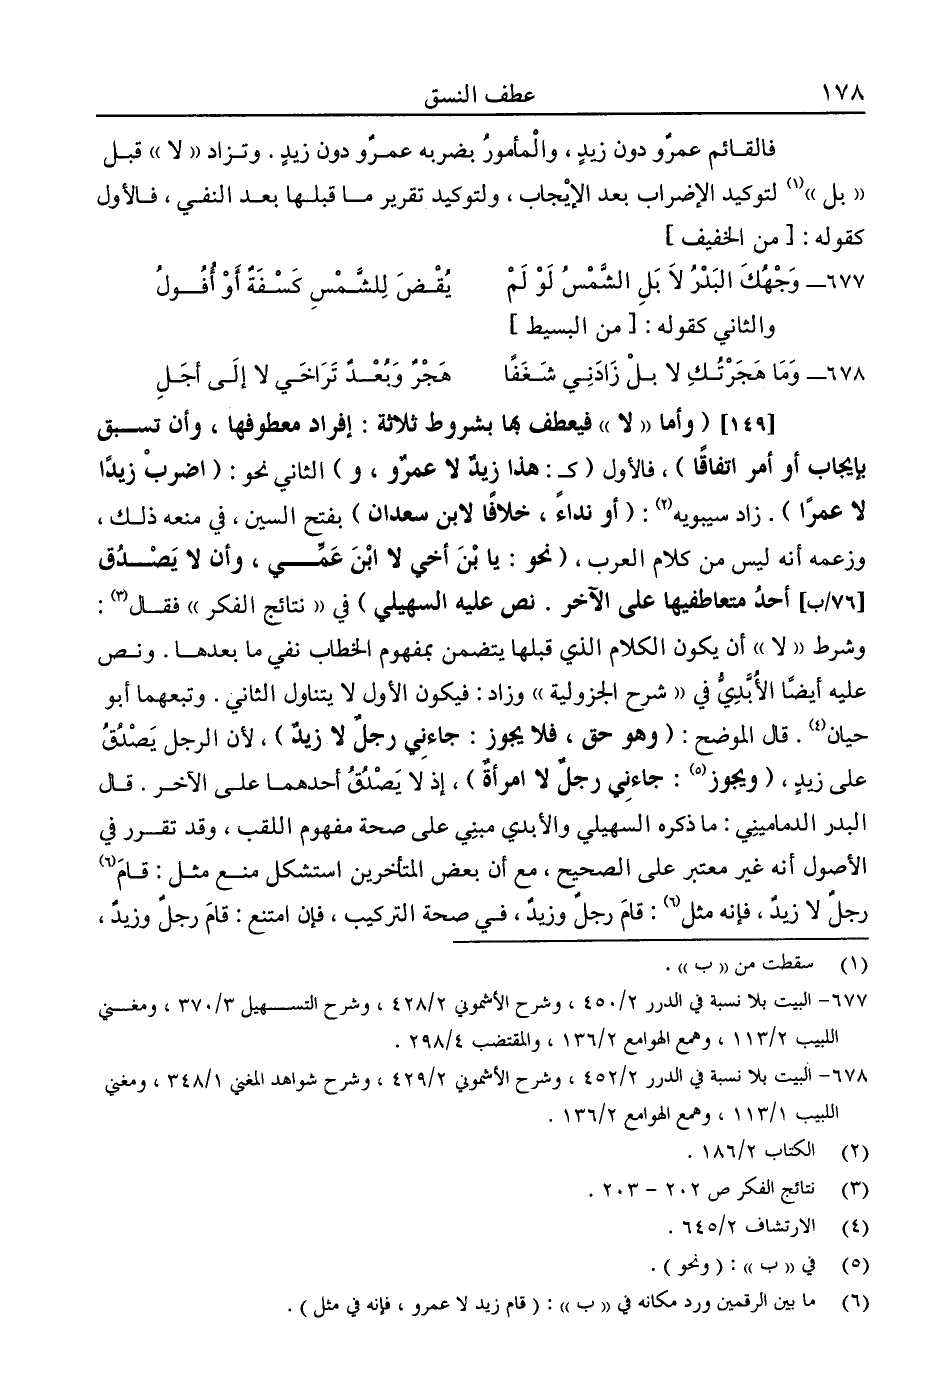 ١٧٨ عطف النسق
فالقائم عمرٌو دون زيدٍ ، والْمأمورُ بضربه عمرٌو دون زيدٍ . وتزاد « لا » قبل
« بل »(١) لتوكيد الإضراب بعد الإيْجاب ، ولتوكيد تقرير ما قبلها بعد النفي ، فالأول
كقوله : [ من الخفيف ]
٦٧٧ـ وَجْهُكَ البَدْرُ لاَ بَلِ الشَّمْسُ لَوْ لَمْ يُقْضَ لِلشَّمْسِ كَسْفَةٌ أَوْ أُفُولُ
والثاني كقوله : [ من البسيط ]
٦٧٨ـ وَمَا هَجَرْتُكِ لا بلْ زَادَنِي شَغَفًا هَجْرٌ وَبُعْدٌ تَرَاخَي لا إلَى أجَلِ
[١٤٩] ( وأما « لا » فيعطف بها بشروط ثلاثة : إفراد معطوفها ، وأن تسبق
بإيجاب أو أمر اتفاقًا ) ، فالأول ( كـ : هذا زيدٌ لا عمرٌو ، و ) الثاني نحو : ( اضربْ زيدًا
لا عمرًا ) . زاد سيبويه(٢) : ( أو نداءً ، خلافًا لابن سعدان ) بفتح السين ، في منعه ذلك ،
وزعمه أنه ليس من كلام العرب ، ( نحو : يا بْنَ أخي لا ابْنَ عَمِّي ، وأن لا يَصْدُق
[٧٦/ب] أحدُ متعاطفيها على الآخر . نص عليه السهيلي ) في « نتائج الفكر » فقال(٣) :
وشرط « لا » أن يكون الكلام الذي قبلها يتضمن بمفهوم الخطاب نفي ما بعدها . ونص
عليه أيضًا الأُبَّذِيُّ في « شرح الجزولية » وزاد : فيكون الأول لا يتناول الثاني . وتبعهما أبو
حيان(٤) . قال الموضح : ( وهو حق ، فلا يجوز : جاءني رجلٌ لا زيدٌ ) ، لأن الرجل يَصْدُقُ
على زيدٍ ، ( ويجوز(٥) : جاءني رجلٌ لا امرأةٌ ) ، إذ لا يَصْدُقُ أحدهما على الآخر . قال
البدر الدماميني : ما ذكره السهيلي والأبدي مبني على صحة مفهوم اللقب ، وقد تقرر في
الأصول أنه غير معتبر على الصحيح ، مع أن بعض المتأخرين استشكل منع مثل : قامَ(٦)
رجلٌ لا زيدٌ ، فإنه مثل(٦) : قامَ رجلٌ وزيدٌ ، في صحة التركيب ، فإن امتنع : قامَ رجلٌ وزيدٌ ،
(١) سقطت من « ب » .
٦٧٧- البيت بلا نسبة في الدرر ٤٥٠/٢ ، وشرح الأشموني ٤٢٨/٢ ، وشرح التسهيل ٣٧٠/٣ ، ومغني
اللبيب ١١٣/٢ ، وهمع الهوامع ١٣٦/٢ ، والمقتضب ٢٩٨/٤ .
٦٧٨- البيت بلا نسبة في الدرر ٤٥٢/٢ ، وشرح الأشموني ٤٢٩/٢ ، وشرح شواهد المغني ٣٤٨/١ ، ومغني
اللبيب ١١٣/١ ، وهمع الهوامع ١٣٦/٢ .
(٢) الكتاب ١٨٦/٢ .
(٣) نتائج الفكر ص ٢٠٢ – ٢٠٣ .
(٤) الارتشاف ٦٤٥/٢ .
(٥) في « ب » : ( ونحو ) .
(٦) ما بين الرقمين ورد مكانه في « ب » : ( قام زيد لا عمرو ، فإنه في مثل ) .